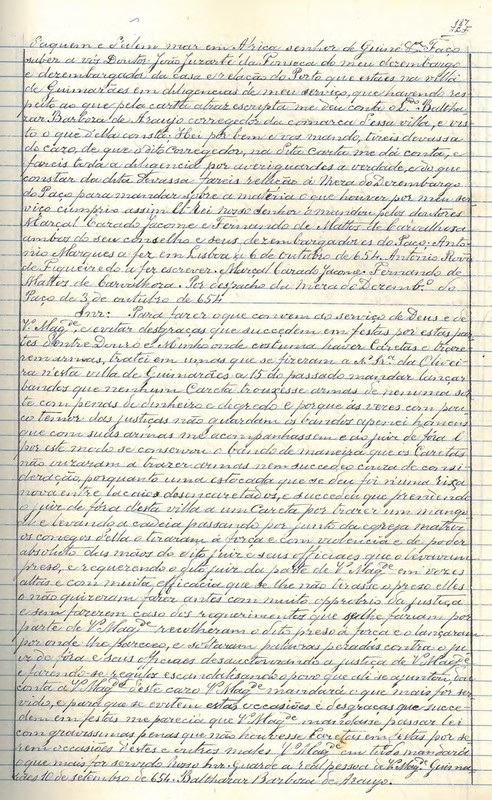 187
daquem e dalem mar em Africa senhor de Guiné &ra Faço
saber a vós Doutor João Juzarte da Fonseca do meu dezembargo
e dezembargador da casa e relação do Porto que estaes na villa
de Guimarães em diligencias de meu serviço, que havendo res-
peito ao que pela carta atraz escripta me deu conta o Ldo Baltha-
zar Barboza de Araujo corregedor da comarca d'essa villa, e vis-
to o que d'ella consta: Hei por bem e vos mando, tireis devassa
do cazo, de que o dito corregedor, na dita carta me dá conta, e
fareis toda a diligencia por averiguardes a verdade, e do que
constar da dita devassa fareis rellação á Meza do Dezembargo
do Paço para mandar sobre a materia o que houver por meu ser-
viço cumprio assim. El Rei nosso senhor o mandou pelos doutores
Marçal Cazado Jacome e Fernando de Mattos de Carvalhosa
ambos do seu conselho e seus dezembargadores do Paço: Anto-
nio Marques a fez em Lisboa a 6 de outubro de 654. Antonio Roiz
de Figueiredo a fez escrever. Marçal Cazado Jacome. Fernando de
Mattos de Carvalhoza. Por despacho da Meza do Dezembo do
Paço de 3 de outubro de 654.
Snr: Para fazer o que convem ao serviço de Deus e de
V. Magde e evitar desgraças que succedem em festas por estas par-
tes d'entre Douro e Minho onde costuma haver Caretas e traze-
rem armas, tratei em umas que se fizeram a Na Snra da Olivei-
ra n'esta villa de Guimarães a 15 do passado mandar lançar
bandos que nenhum Careta trouxesse armas de nenuma sor-
te com penas de dinheiro e degredo e porque ás vezes com pou-
co temor das justiças não guardam os bandos apenei homens
que com suas armas me acompanhassem e ao juiz de fóra e
por este modo se conservou o bando de maneira que os Caretas
não ouzaram a trazer armas nem succedeo couza de consi-
deração, porquanto uma estocada que se deu foi n'uma rixa
nova entre lacaios desencaretados, e succedeu que prendendo
o juiz de fóra d'esta villa a um Careta por trazer um mango-
te e levando-o á cadeia passando por junto da egreja matriz
os conegos d'ella o tiraram á força e com violencia e de poder
absoluto das mãos do dito juiz e seus officiaes que o levavam
preso, e requerendo o dito juiz da parte de V. Magde em vozes
altas e com muita efficacia que se lhe não tirasse o preso elles
o não quizeram fazer antes com muito opprobrio da justiça
e sem fazerem caso dos requerimentos que se lhe faziam por
parte de V. Magde recolheram o dito preso á força e o lançaram
por onde lhe pareceo, e soltaram palavras pezadas contra o ju-
iz de fóra e seus officiaes desauctorizando a justiça de V. Magde
e fazendo-se regulos escandalisando o povo que ali se ajuntou, dou
conta a V. Magde d'este cazo V. Magde mandará o que mais for ser-
vido, e para que se evitem estas occasiões e desgraças que succe-
dem em festas me parecia que V. Magde mandasse passar lei
com gravissimas penas que não houvesse Caretas em festas por se-
rem occasiões d'estes e outros males V. Magde em tudo mandará
o que mais for servido Nosso Snr. Guarde a real pessoa de V. Magde Guima-
rães 10 de setembro de 654. Balthazar Barboza de Araujo.